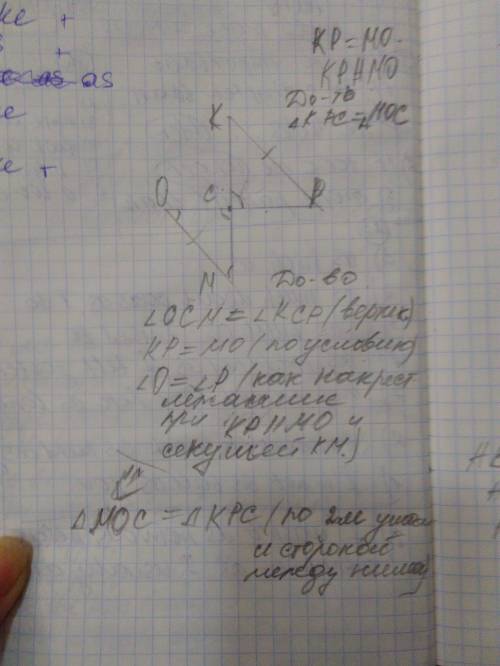 ке +
s +
as
е
ке +
KP = MO
KP || MO
До-ть
△KPC = △MOC
K
O
C
P
M
До-во
∠OCM = ∠KCP (вертик)
KP = MO (по условию)
∠O = ∠P (как накрест
лежащие
при KP || MO и
секущей KM.)
△MOC = △KPC (по 2м углам
и стороной
между ними)